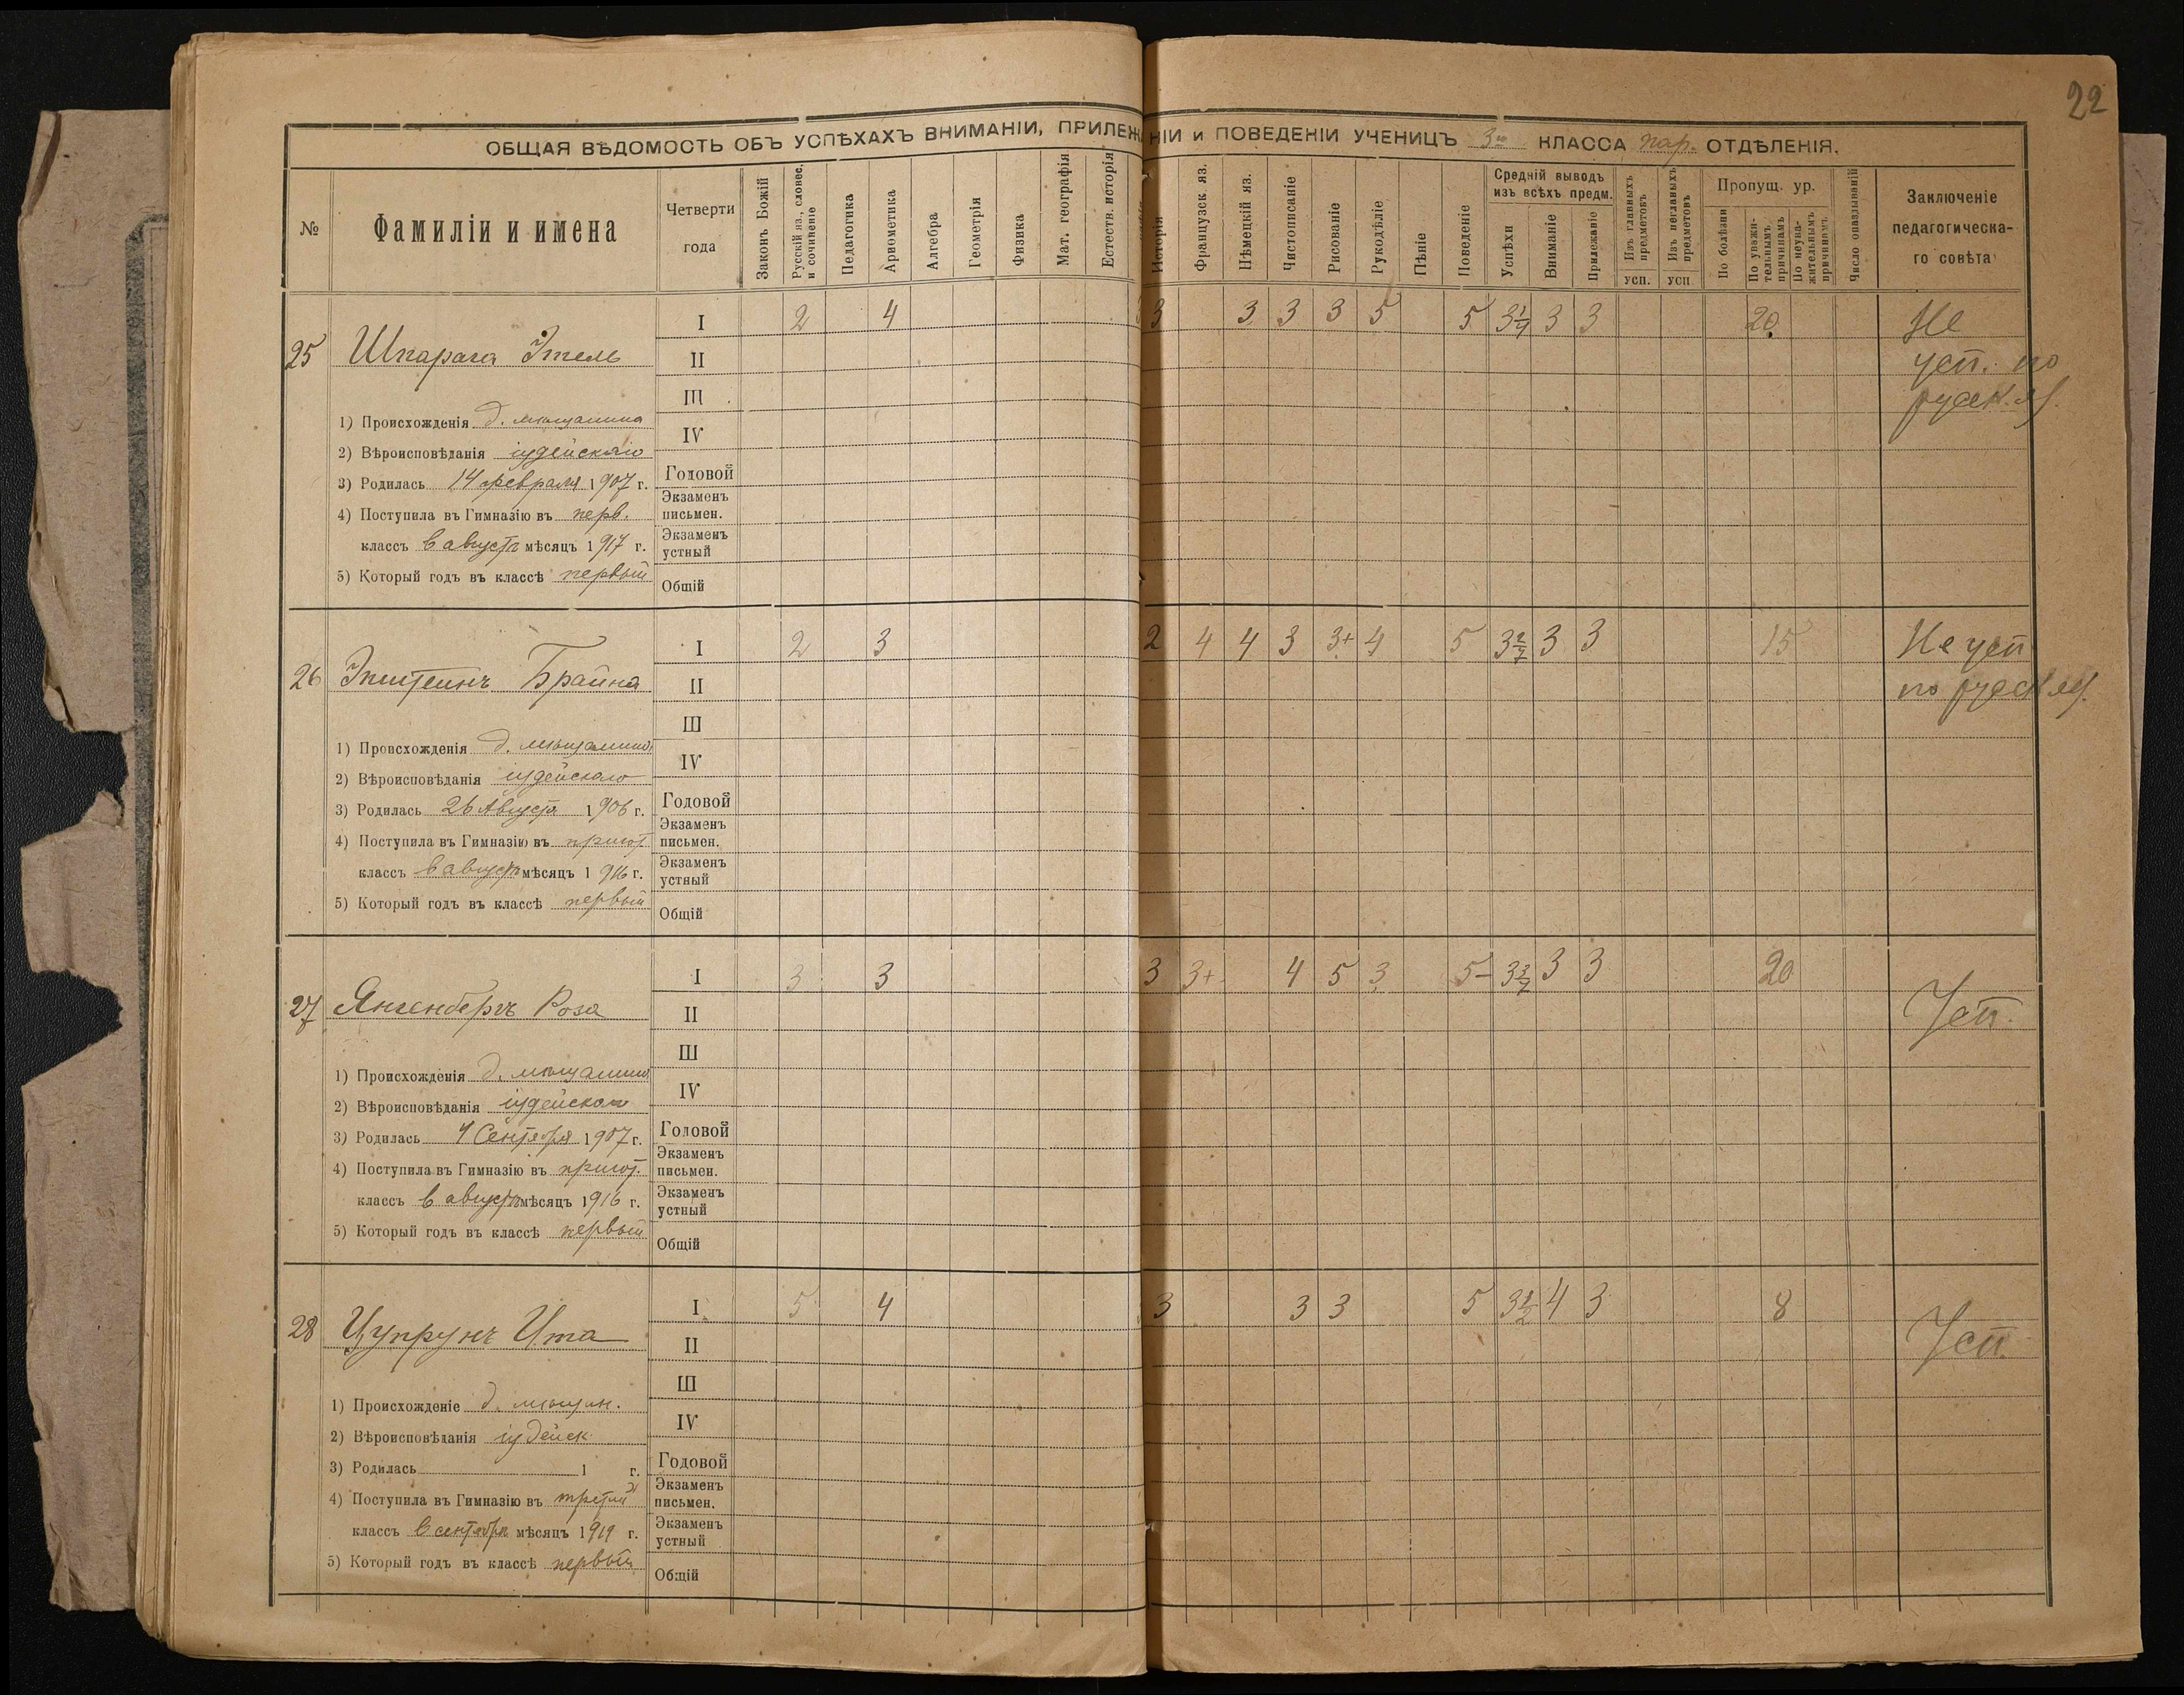 22
ОБЩАЯ ВѢДОМОСТЬ ОБЪ УСПѢХАХЪ ВНИМАНІИ, ПРИЛЕЖАНІИ и ПОВЕДЕНІИ УЧЕНИЦЪ 3го КЛАССА пар. ОТДѢЛЕНІЯ.
№ Фамиліи и имена Четверти года Законъ Божій Русскій яз., словес. и сочиненіе Педагогика Ариѳметика Алгебра Геометрія Физика Мат. географія Естеств. исторія Исторія Французск. яз. Нѣмецкій яз. Чистописаніе Рисованіе Рукодѣліе Пѣніе Поведеніе Средній выводъ изъ всѣхъ предм. Успѣхи Вниманіе Прилежаніе Изъ главныхъ предметовъ усп. Изъ неглавныхъ предметовъ усп. Пропущ. ур. По болѣзни По уважительнымъ причинамъ По неуважительнымъ причинамъ Число опаздываній Заключеніе педагогическаго совѣта
25 Шпарага Этель I 2 4 3 3 3 3 5 5 3 3 20 Не
II усп. по
III русск. яз.
1) Происхожденія д. мѣщанина
IV
2) Вѣроисповѣданія іудейскаго
Годовой
3) Родилась 14 февраля 1907 г.
Экзаменъ письмен.
4) Поступила въ Гимназію въ перв.
классъ в августѣ мѣсяцъ 1917 г.
Экзаменъ устный
5) Который годъ въ классѣ первый
Общій
26 Эпштейнъ Брайна I 2 3 2 4 4 3 3+ 4 5 3 2/7 3 3 15 Не усп.
II по русск. яз.
III
1) Происхожденія д. мѣщанина
IV
2) Вѣроисповѣданія іудейскаго
Годовой
3) Родилась 26 Августа 1906 г.
Экзаменъ письмен.
4) Поступила въ Гимназію въ пригот.
классъ в августѣ мѣсяцъ 1916 г.
Экзаменъ устный
5) Который годъ въ классѣ первый
Общій
27 Янкенберъ Роза I 3 3 3 3+ 4 5 3 5- 3 3/7 3 3 20 Усп.
II
III
1) Происхожденія д. мѣщанина
IV
2) Вѣроисповѣданія іудейскаго
Годовой
3) Родилась Сентября 1907 г.
Экзаменъ письмен.
4) Поступила въ Гимназію въ пригот.
классъ в августѣ мѣсяцъ 1916 г.
Экзаменъ устный
5) Который годъ въ классѣ первый
Общій
28 Цупрунъ Ита I 5 4 3 3 3 5 4 3 8 Усп.
II
III
1) Происхожденіе д. мѣщан.
IV
2) Вѣроисповѣданія іудейск.
Годовой
3) Родилась 1 г.
Экзаменъ письмен.
4) Поступила въ Гимназію въ третій
классъ в сентябрѣ мѣсяцъ 1919 г.
Экзаменъ устный
5) Который годъ въ классѣ первый
Общій